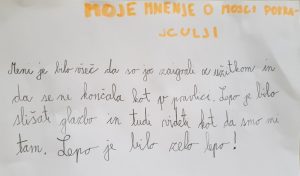 MOJE MNENJE O MOJCI POKRA-
JCULJI
Meni je bilo všeč da so jo zaigrale z užitkom in
da se ne končala kot v pravlici. Lepo je bilo
slišati glazbo in tudi videti kot da smo mi
tam. Lepo je bilo zelo lepo!